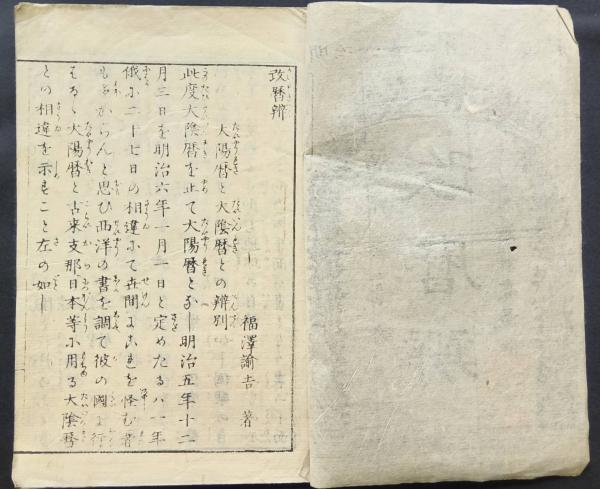 改暦辨
福澤諭吉 著
太陽暦と太陰暦との辨別
此度太陰暦を止て太陽暦となし明治五年十二
月三日を明治六年一月一日と定めたるハ一年
俄に二十七日の相違にて世間にこれを怪む者
も多からんと思ひ西洋の書を調て彼の國に行
はるゝ太陽暦と古来支那日本等に用る太陰暦
との相違を示すこと左の如し